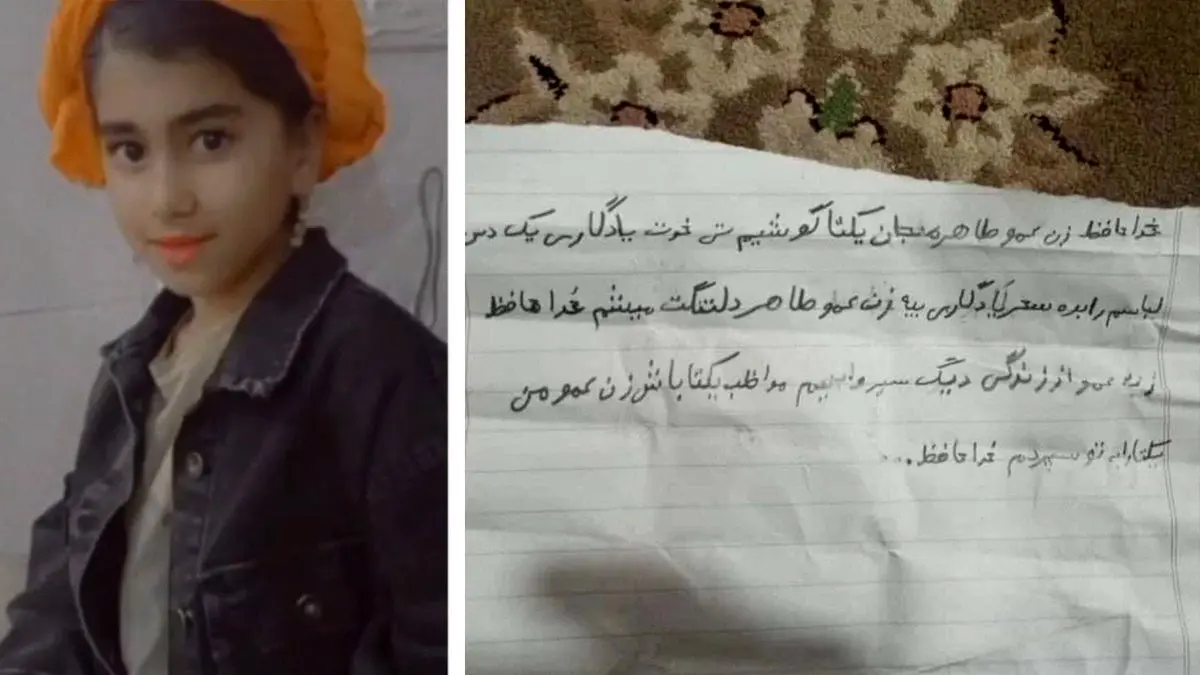 خدا حافظ زن عمو طاهره جان یکتا گوشیم تی خوت یادگاری یک دس
لباسم را بده سحر یادگاری بیه زن عمو طاهر دلتنگت میشم خدا حافظ
زن عمو از زندگی دیگ سیر واییم مواظب یکتا باش زن عمو من
یکتا را به تو سپردم خدا حافظ...